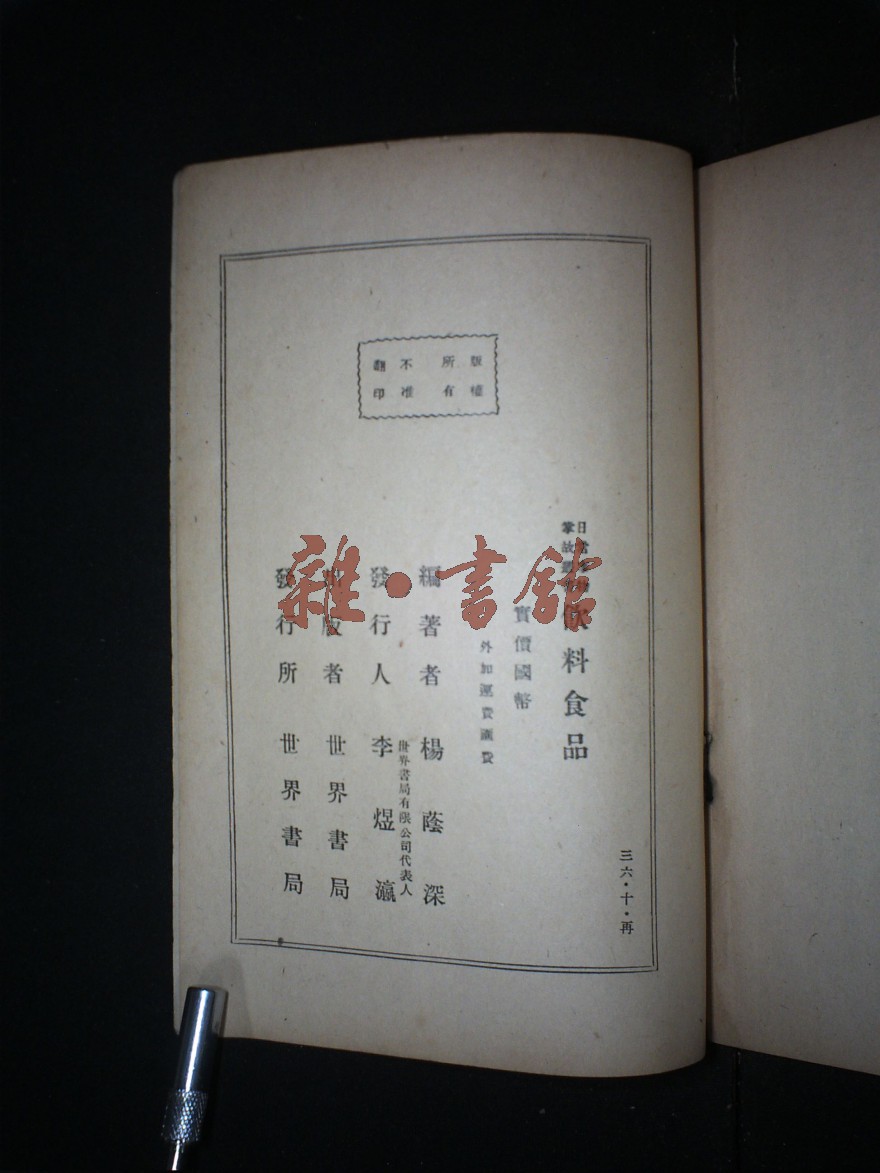 三六·十·再
日常事物
掌故叢書
飲料食品
實價國幣
外加運費滙費
編著者 楊蔭深
世界書局有限公司代表人
發行人 李煜瀛
出版者 世界書局
發行所 世界書局
版權
所有
不准
翻印
雜·書館